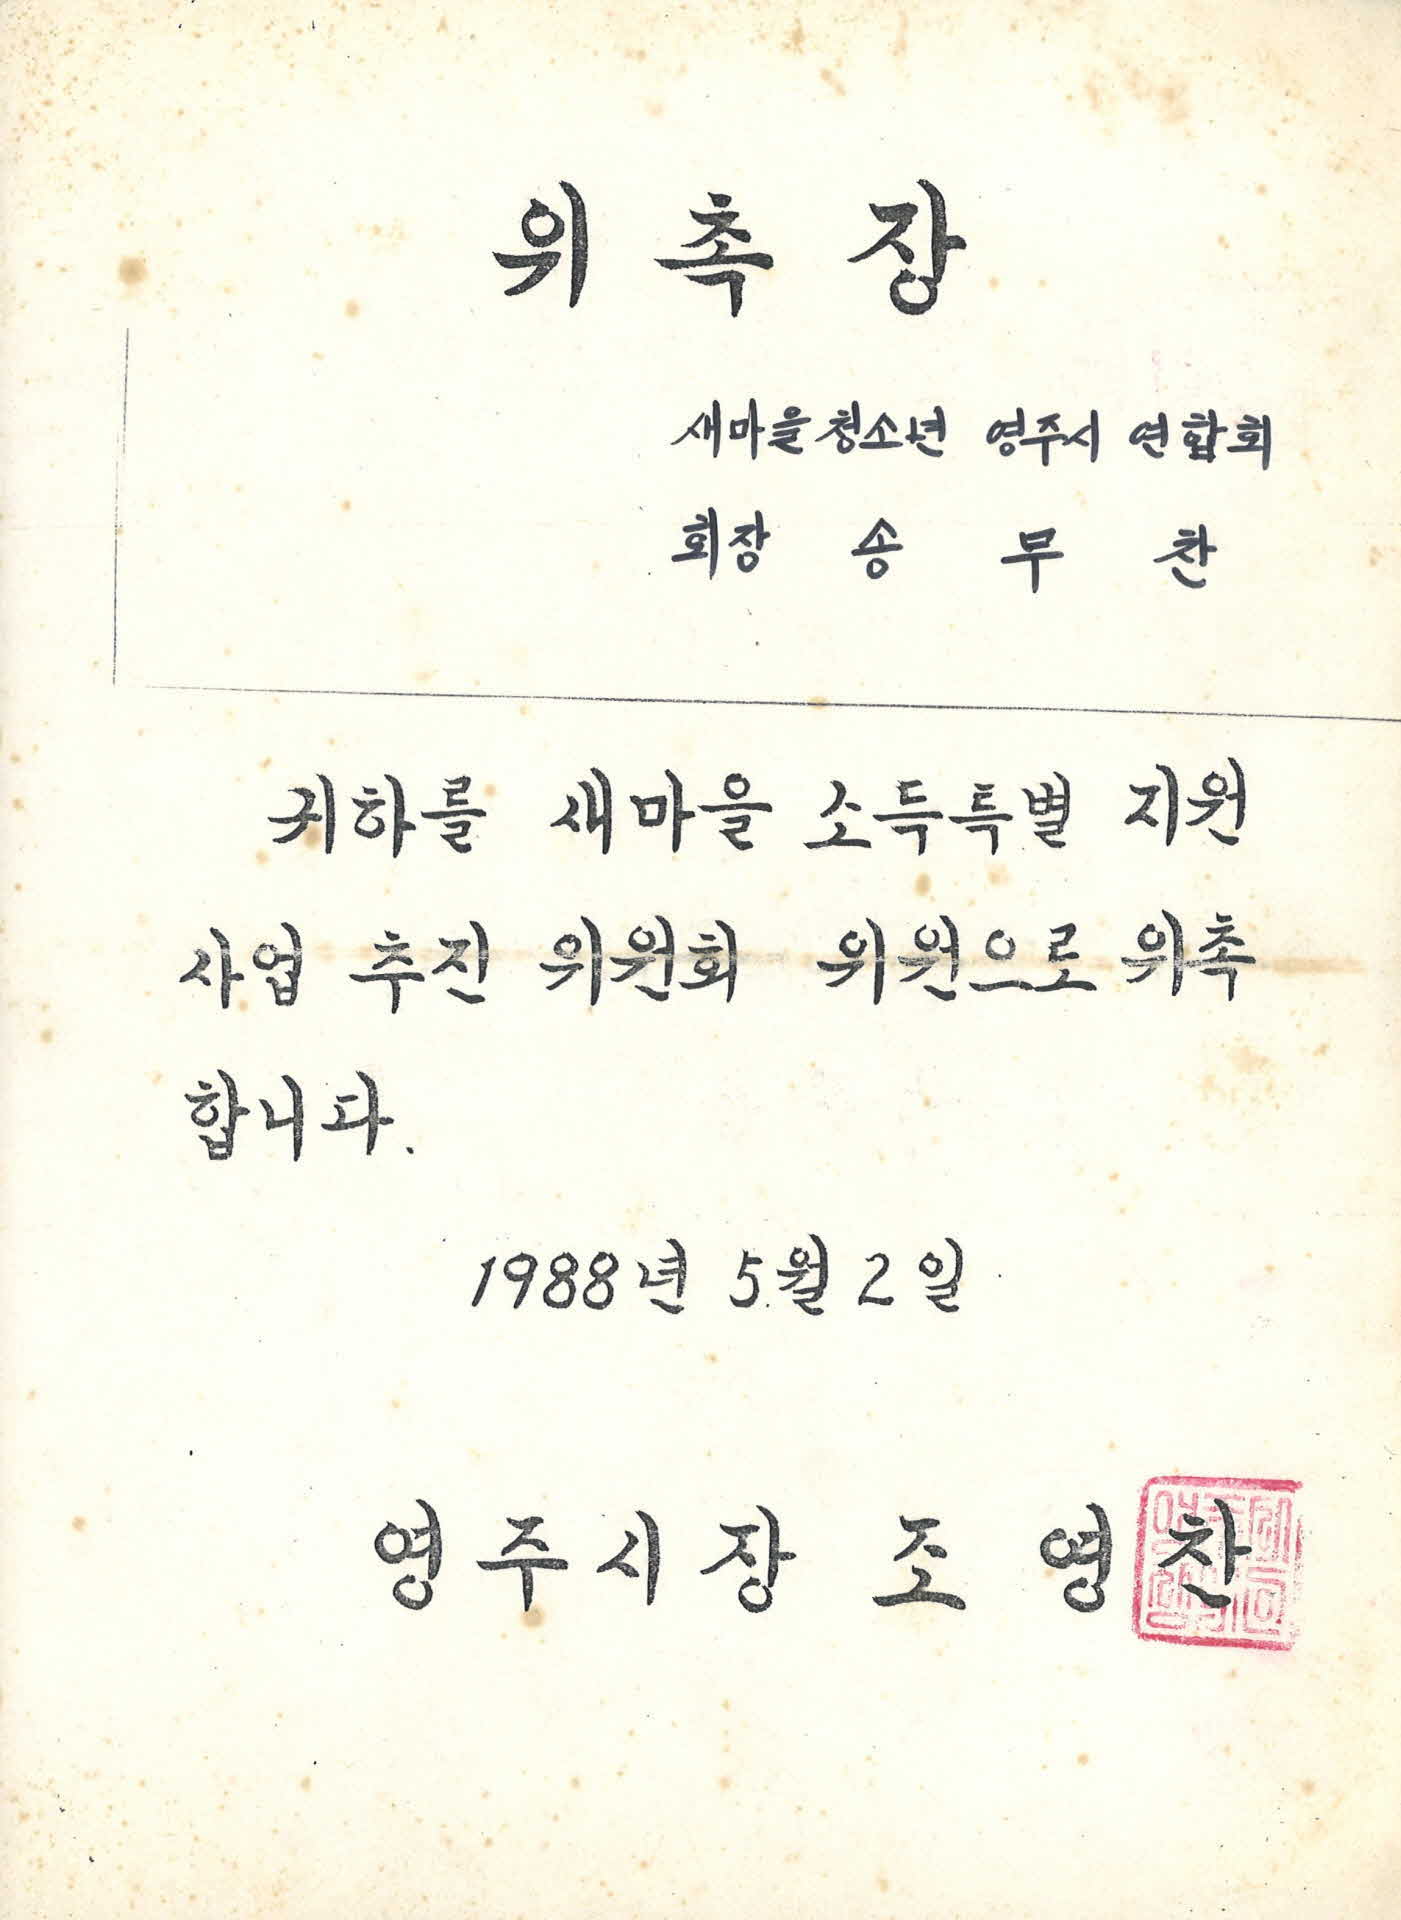 위촉장
새마을청소년 영주시 연합회
회장 송무찬
귀하를 새마을 소득특별 지원
사업 추진 위원회 위원으로 위촉
합니다.
1988년 5월 2일
영주시장 조영찬